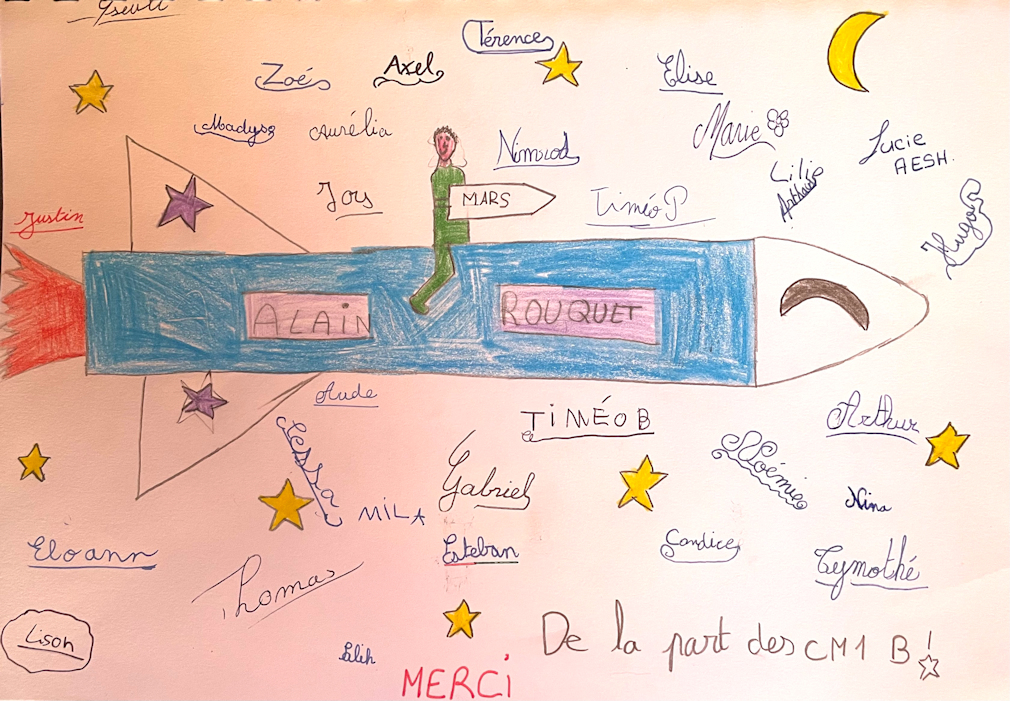 Térence
Zoé
Axel
Elise
Madyss
Aurélia
Nimrod
Marie
Lucie
AESH.
Lilie
Jors
MARS
Timéo P
Hugo
Justin
ALAIN
ROUQUET
Aude
TIMÉO B
Arthur
Tessa
Gabriel
Noémie
MILA
Nina
Eloann
Esteban
Candice
Tymothé
Thomas
Lison
De la part des CM1 B!
MERCI